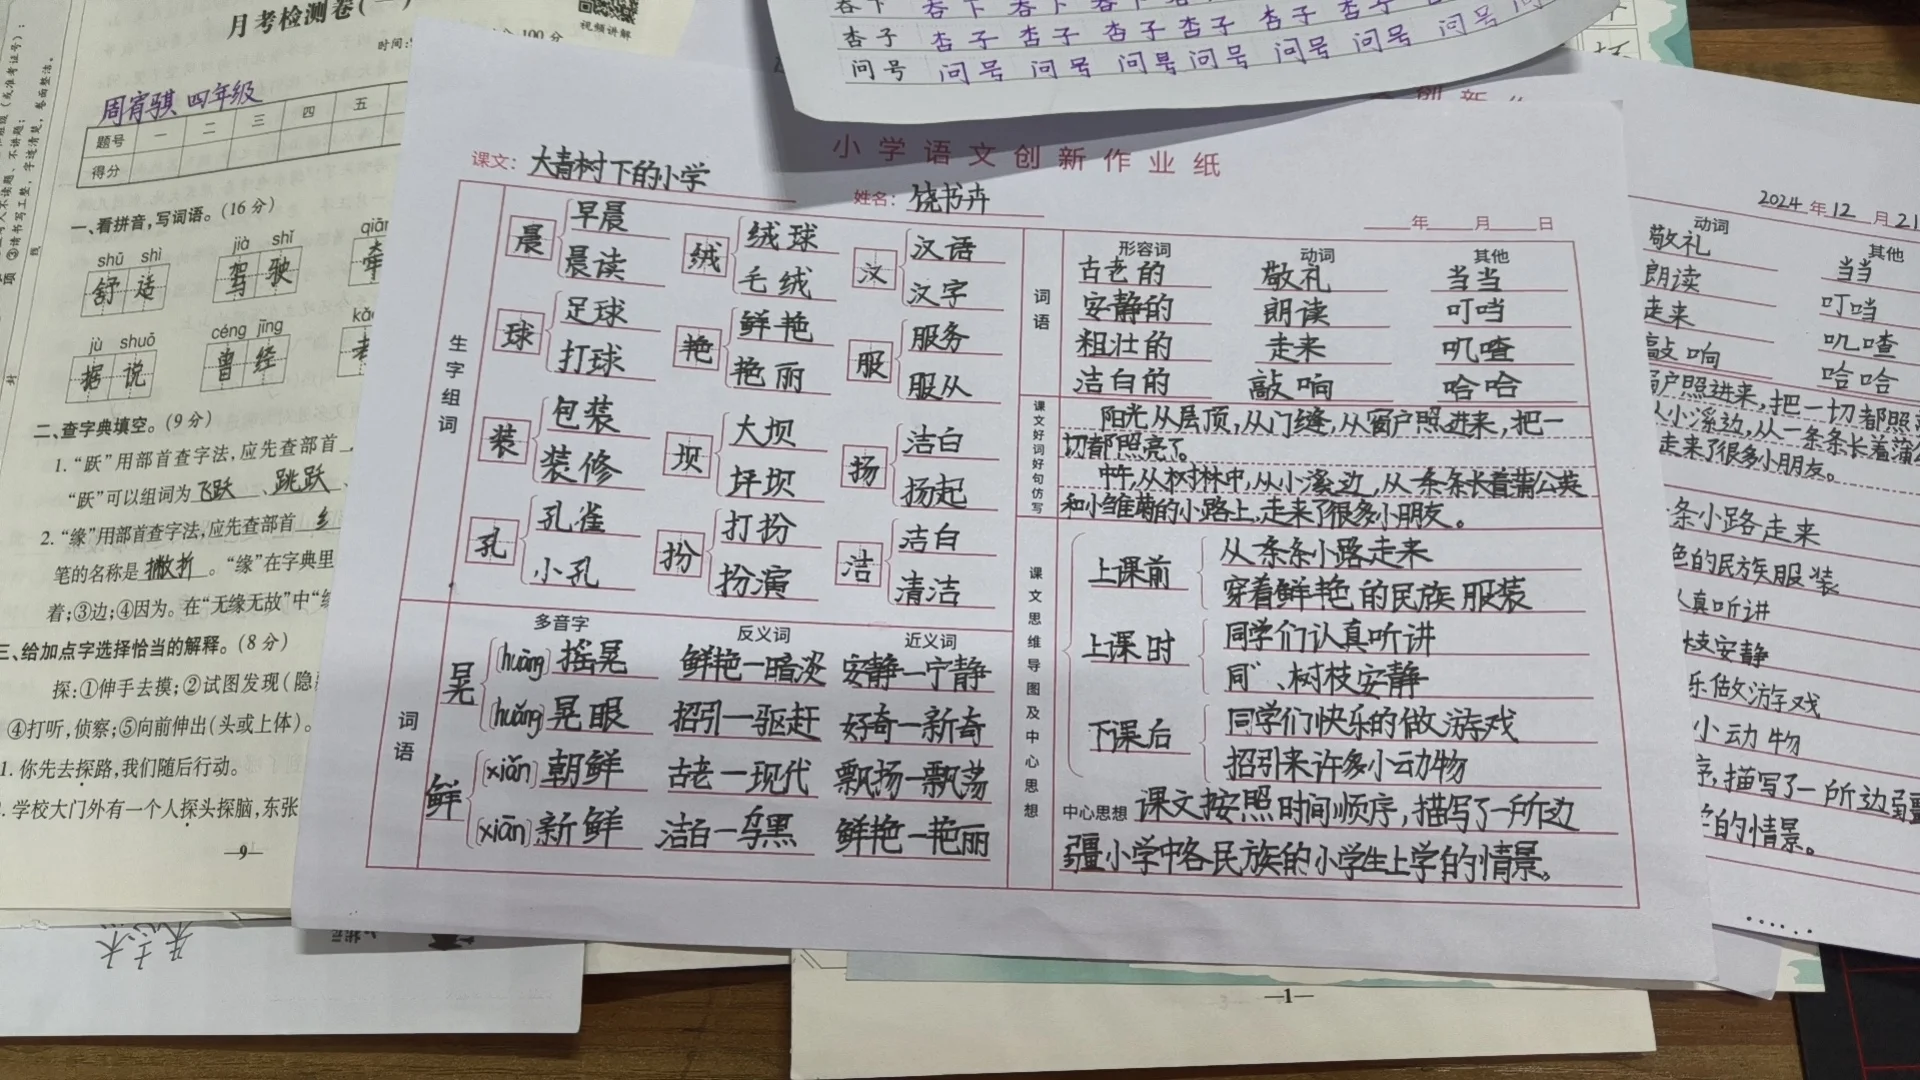 月考检测卷(一)
视频讲解
周宵骐 四年级
题号 一 二 三 四 五
得分
一、看拼音,写词语。(16分)
shū shì jià shǐ
舒适 驾驶
jù shuō céng jīng
据说 曾经
二、查字典填空。(9分)
1.“跃”用部首查字法,应先查部首
“跃”可以组词为飞跃、跳跃
2.“缘”用部首查字法,应先查部首纟
笔的名称是撇折。“缘”在字典里
着;③边;④因为。在“无缘无故”中“缘
三、给加点字选择恰当的解释。(8分)
探:①伸手去摸;②试图发现(隐
④打听,侦察;⑤向前伸出(头或上体)。
1. 你先去探路,我们随后行动。
学校大门外有一个人探头探脑,东张
—9—
杏子 杏子 杏子 杏子 杏子 杏子 杏子
问号 问号 问号 问号 问号 问号 问号 问号
小学语文创新作业纸
课文: 大青树下的小学
姓名: 饶书卉
年 月 日
生字组词
晨 早晨 晨读
绒 绒球 毛绒
汉 汉语 汉字
球 足球 打球
艳 鲜艳 艳丽
服 服务 服从
装 包装 装修
坝 大坝 坪坝
扬 洁白 扬起
孔 孔雀 小孔
扮 打扮 扮演
洁 洁白 清洁
词语
多音字 反义词 近义词
晃 (huàng) 摇晃 鲜艳—暗淡 安静—宁静
(huǎng) 晃眼 招引—驱赶 好奇—新奇
鲜 (xiǎn) 朝鲜 古老—现代 飘扬—飘荡
(xiān) 新鲜 洁白—乌黑 鲜艳—艳丽
词语
形容词 动词 其他
古老的 敬礼 当当
安静的 朗读 叮当
粗壮的 走来 叽喳
洁白的 敲响 哈哈
课文好词好句仿写
阳光从屋顶,从门缝,从窗户照进来,把一
切都照亮了。
中午,从树林中,从小溪边,从一条条长着蒲公英
和小雏菊的小路上,走来了很多小朋友。
课文思维导图及中心思想
上课前 从条条小路走来
穿着鲜艳的民族服装
上课时 同学们认真听讲
、树枝安静
下课后 同学们快乐的做游戏
招引来许多小动物
中心思想 课文按照时间顺序,描写了一所边
疆小学中各民族的小学生上学的情景。
2024年12月21
动词 其他
敬礼 当当
朗读 叮当
走来 叽喳
敲响 哈哈
户照进来,把一切都照
从小溪边,从一条条长着蒲公
走来了很多小朋友。
条小路走来
色的民族服装
认真听讲
枝安静
乐做游戏
小动物
序,描写了一所边疆
学的情景。
—1—